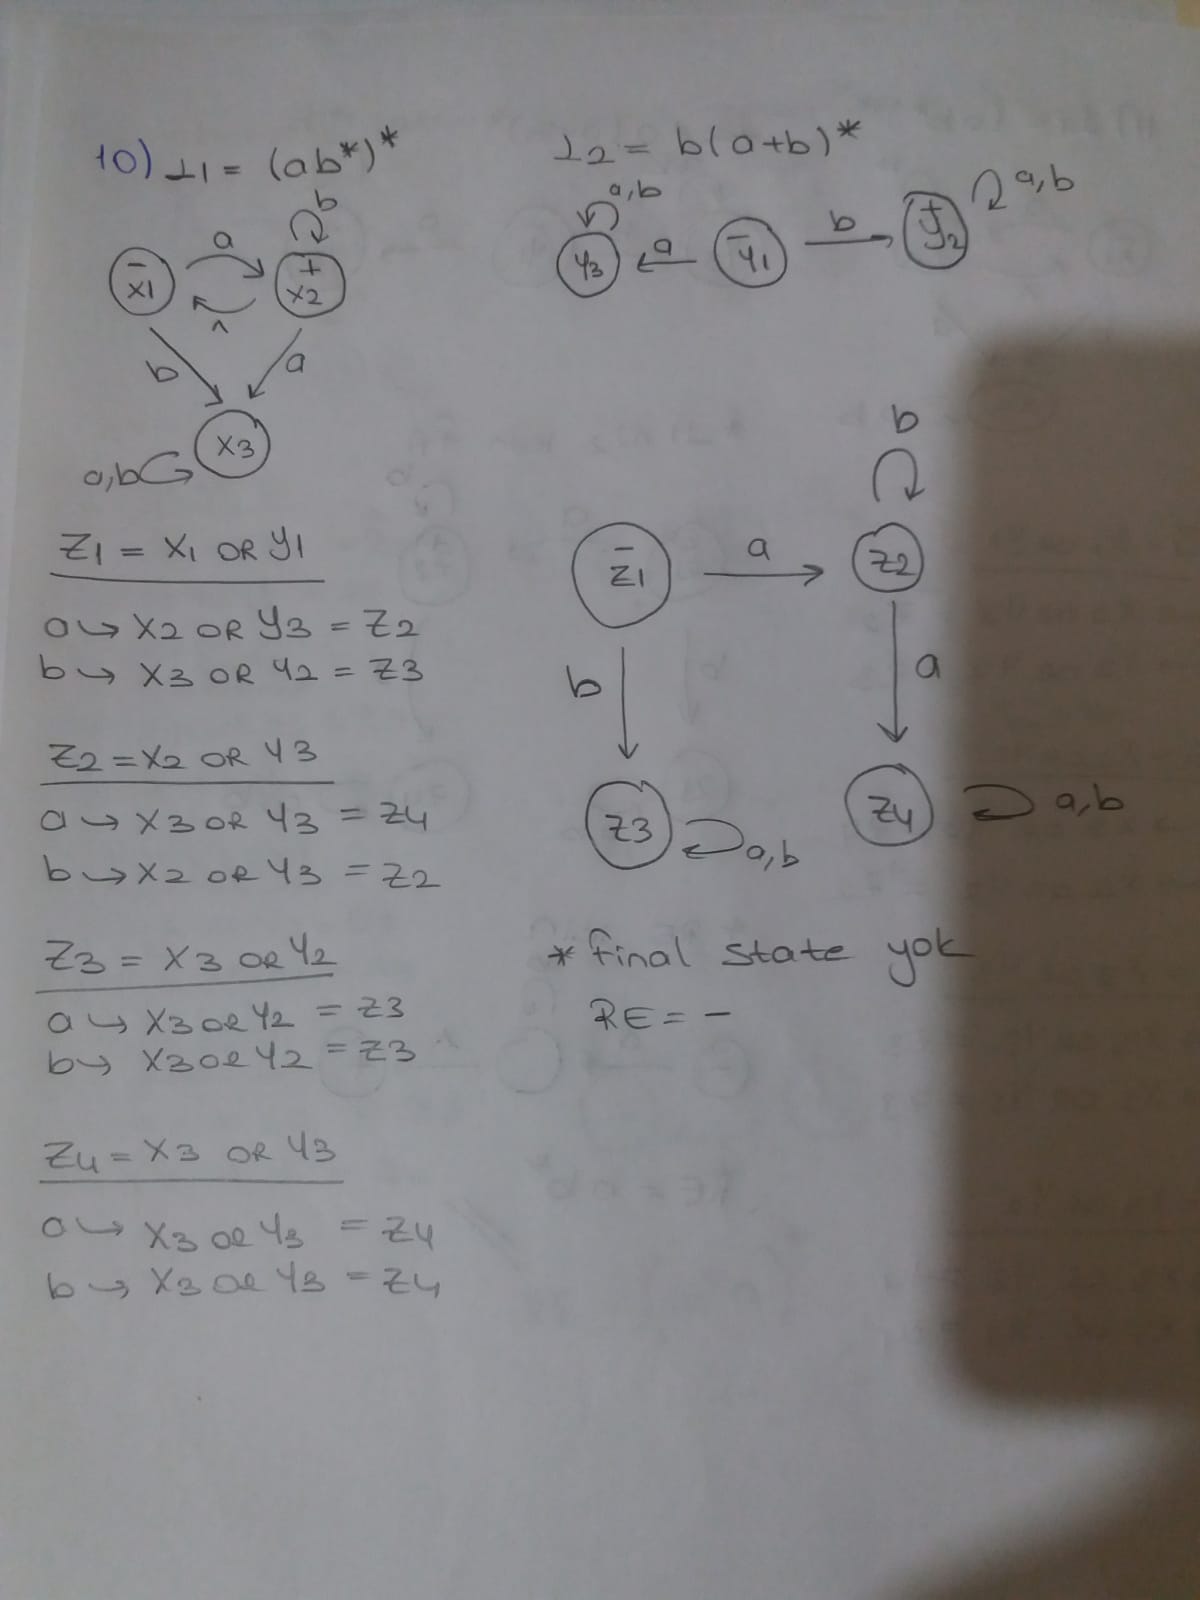 10) L1 = (ab*)*
L2 = b(a+b)*
b
a
- x1
+ x2
^
b
a
x3
a,b
a,b
y3
a
- y1
b
+ y2
a,b
Z1 = X1 OR Y1
a → X2 OR Y3 = Z2
b → X3 OR Y2 = Z3
Z2 = X2 OR Y3
a → X3 OR Y3 = Z4
b → X2 OR Y3 = Z2
Z3 = X3 OR Y2
a → X3 OR Y2 = Z3
b → X3 OR Y2 = Z3
Z4 = X3 OR Y3
a → X3 OR Y3 = Z4
b → X3 OR Y3 = Z4
b
- Z1
a
Z2
b
a
Z3
a,b
Z4
a,b
* final state yok
RE = -